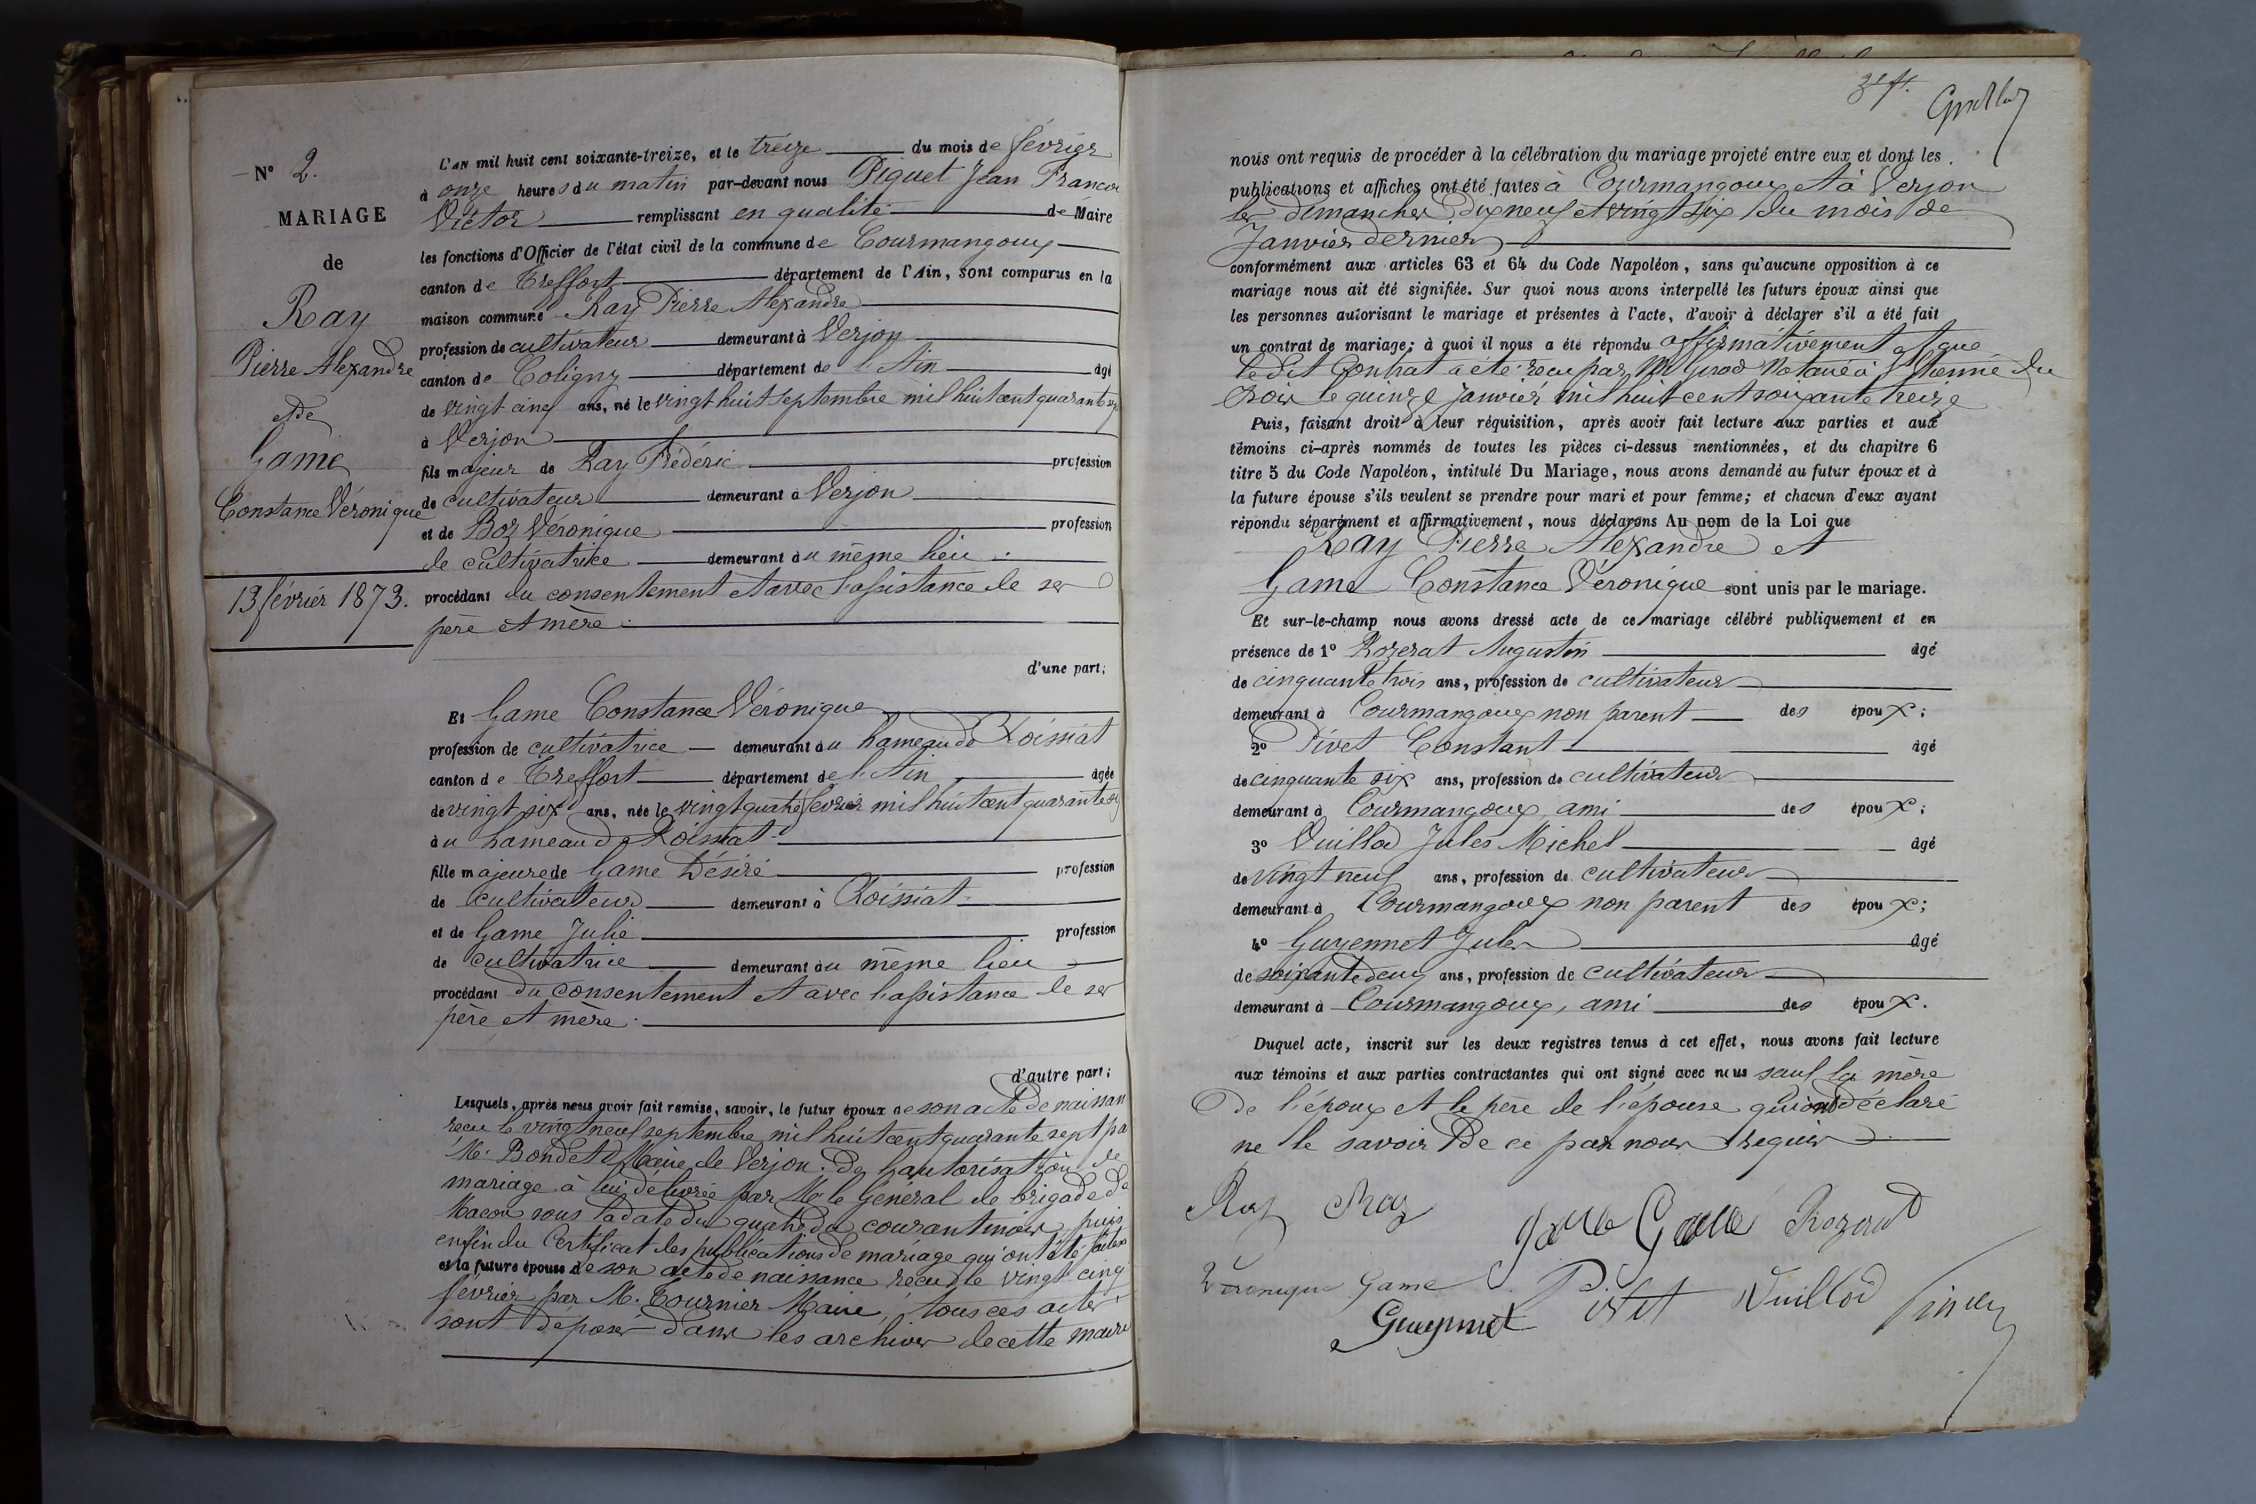 N° 2.
MARIAGE
de
Ray
Pierre Alexandre
et de
Game
Constance Véronique
13 février 1873.
L'AN mil huit cent soixante-treize, et le treize du mois de février
à onze heures du matin par-devant nous Piguet Jean Francois
Victor remplissant en qualité de Maire
les fonctions d'Officier de l'état civil de la commune de Courmangoux
canton de Treffort département de l'Ain, sont comparus en la
maison commune Ray Pierre Alexandre
profession de cultivateur demeurant à Verjon
canton de Coligny département de l'Ain âgé
de vingt cinq ans, né le vingt huit septembre mil huit cent quarante sept
à Verjon
fils majeur de Ray Frédéric profession
de cultivateur demeurant à Verjon
et de Boz Véronique profession
de cultivatrice demeurant au même lieu
procédant du consentement et avec l'assistance de ses
père et mère
d'une part;
Et Game Constance Véronique
profession de cultivatrice demeurant au hameau de Roissiat
canton de Treffort département de l'Ain âgée
de vingt six ans, née le vingt quatre février mil huit cent quarante
au hameau de Roissiat
fille majeure de Game Désiré profession
de cultivateur demeurant à Roissiat
et de Game Julie profession
de cultivatrice demeurant au même lieu
procédant du consentement et avec l'assistance de ses
père et mère.
d'autre part;
Lesquels, après nous avoir fait remise, savoir, le futur époux de son acte de naissan
recu le vingt neuf septembre mil huit cent quarante sept pa
M. Bondet Maire de Verjon. De l'autorisation de
mariage à lui délivrée par Mr le Général de brigade de
Macon sous la date du quatre du courant mois, puis
enfin du Certificat des publications de mariage qui ont été faites
et la future épouse de son acte de naissance recu le vingt cinq
février par M. Tournier Maire, tous ces actes
sont déposés dans les archives de cette mairie
nous ont requis de procéder à la célébration du mariage projeté entre eux et dont les
publications et affiches ont été faites à Courmangoux et à Verjon
les dimanches dix neuf et vingt six du mois de
Janvier dernier
conformément aux articles 63 et 64 du Code Napoléon, sans qu'aucune opposition à ce
mariage nous ait été signifiée. Sur quoi nous avons interpellé les futurs époux ainsi que
les personnes autorisant le mariage et présentes à l'acte, d'avoir à déclarer s'il a été fait
un contrat de mariage; à quoi il nous a été répondu affirmativement et que
le dit Contrat a été recu par Mr Girod Notaire à St Etienne du
Bois le quinze janvier mil huit cent soixante treize
Puis, faisant droit à leur réquisition, après avoir fait lecture aux parties et aux
témoins ci-après nommés de toutes les pièces ci-dessus mentionnées, et du chapitre 6
titre 5 du Code Napoléon, intitulé Du Mariage, nous avons demandé au futur époux et à
la future épouse s'ils veulent se prendre pour mari et pour femme; et chacun d'eux ayant
répondu séparément et affirmativement, nous déclarons Au nom de la Loi que
Ray Pierre Alexandre et
Game Constance Véronique sont unis par le mariage.
Et sur-le-champ nous avons dressé acte de ce mariage célébré publiquement et en
présence de 1° Rozerat Augustin âgé
de cinquante trois ans, profession de cultivateur
demeurant à Courmangoux non parent des époux;
2° Pivet Constant âgé
de cinquante six ans, profession de cultivateur
demeurant à Courmangoux, ami des époux;
3° Vuillod Jules Michel âgé
de vingt neuf ans, profession de cultivateur
demeurant à Courmangoux non parent des époux;
4° Guyennet Jules âgé
de soixante deux ans, profession de cultivateur
demeurant à Courmangoux, ami des époux.
Duquel acte, inscrit sur les deux registres tenus à cet effet, nous avons fait lecture
aux témoins et aux parties contractantes qui ont signé avec nous sauf la mère
de l'époux et le père de l'épouse qui ont déclaré
ne le savoir de ce par nous requis
Ray Ray Game Rozerat
Véronique Game Pivet Vuillod
Guyennet